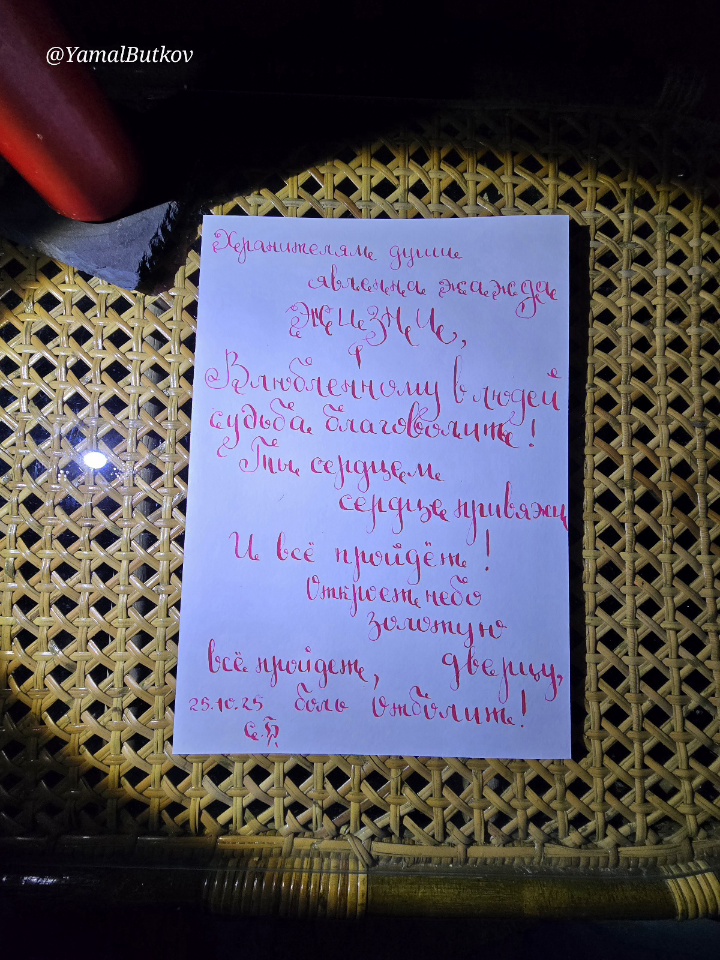 @YamalButkov
Хранителям души
явленна жажда
ЖИЗНИ,
Влюбленному в людей
судьба благоволит!
Ты сердцем
сердце привяжи
И всё пройдёт!
Откроет небо
золотую
всё пройдет, дверцу,
25.10.25 боль отболит!